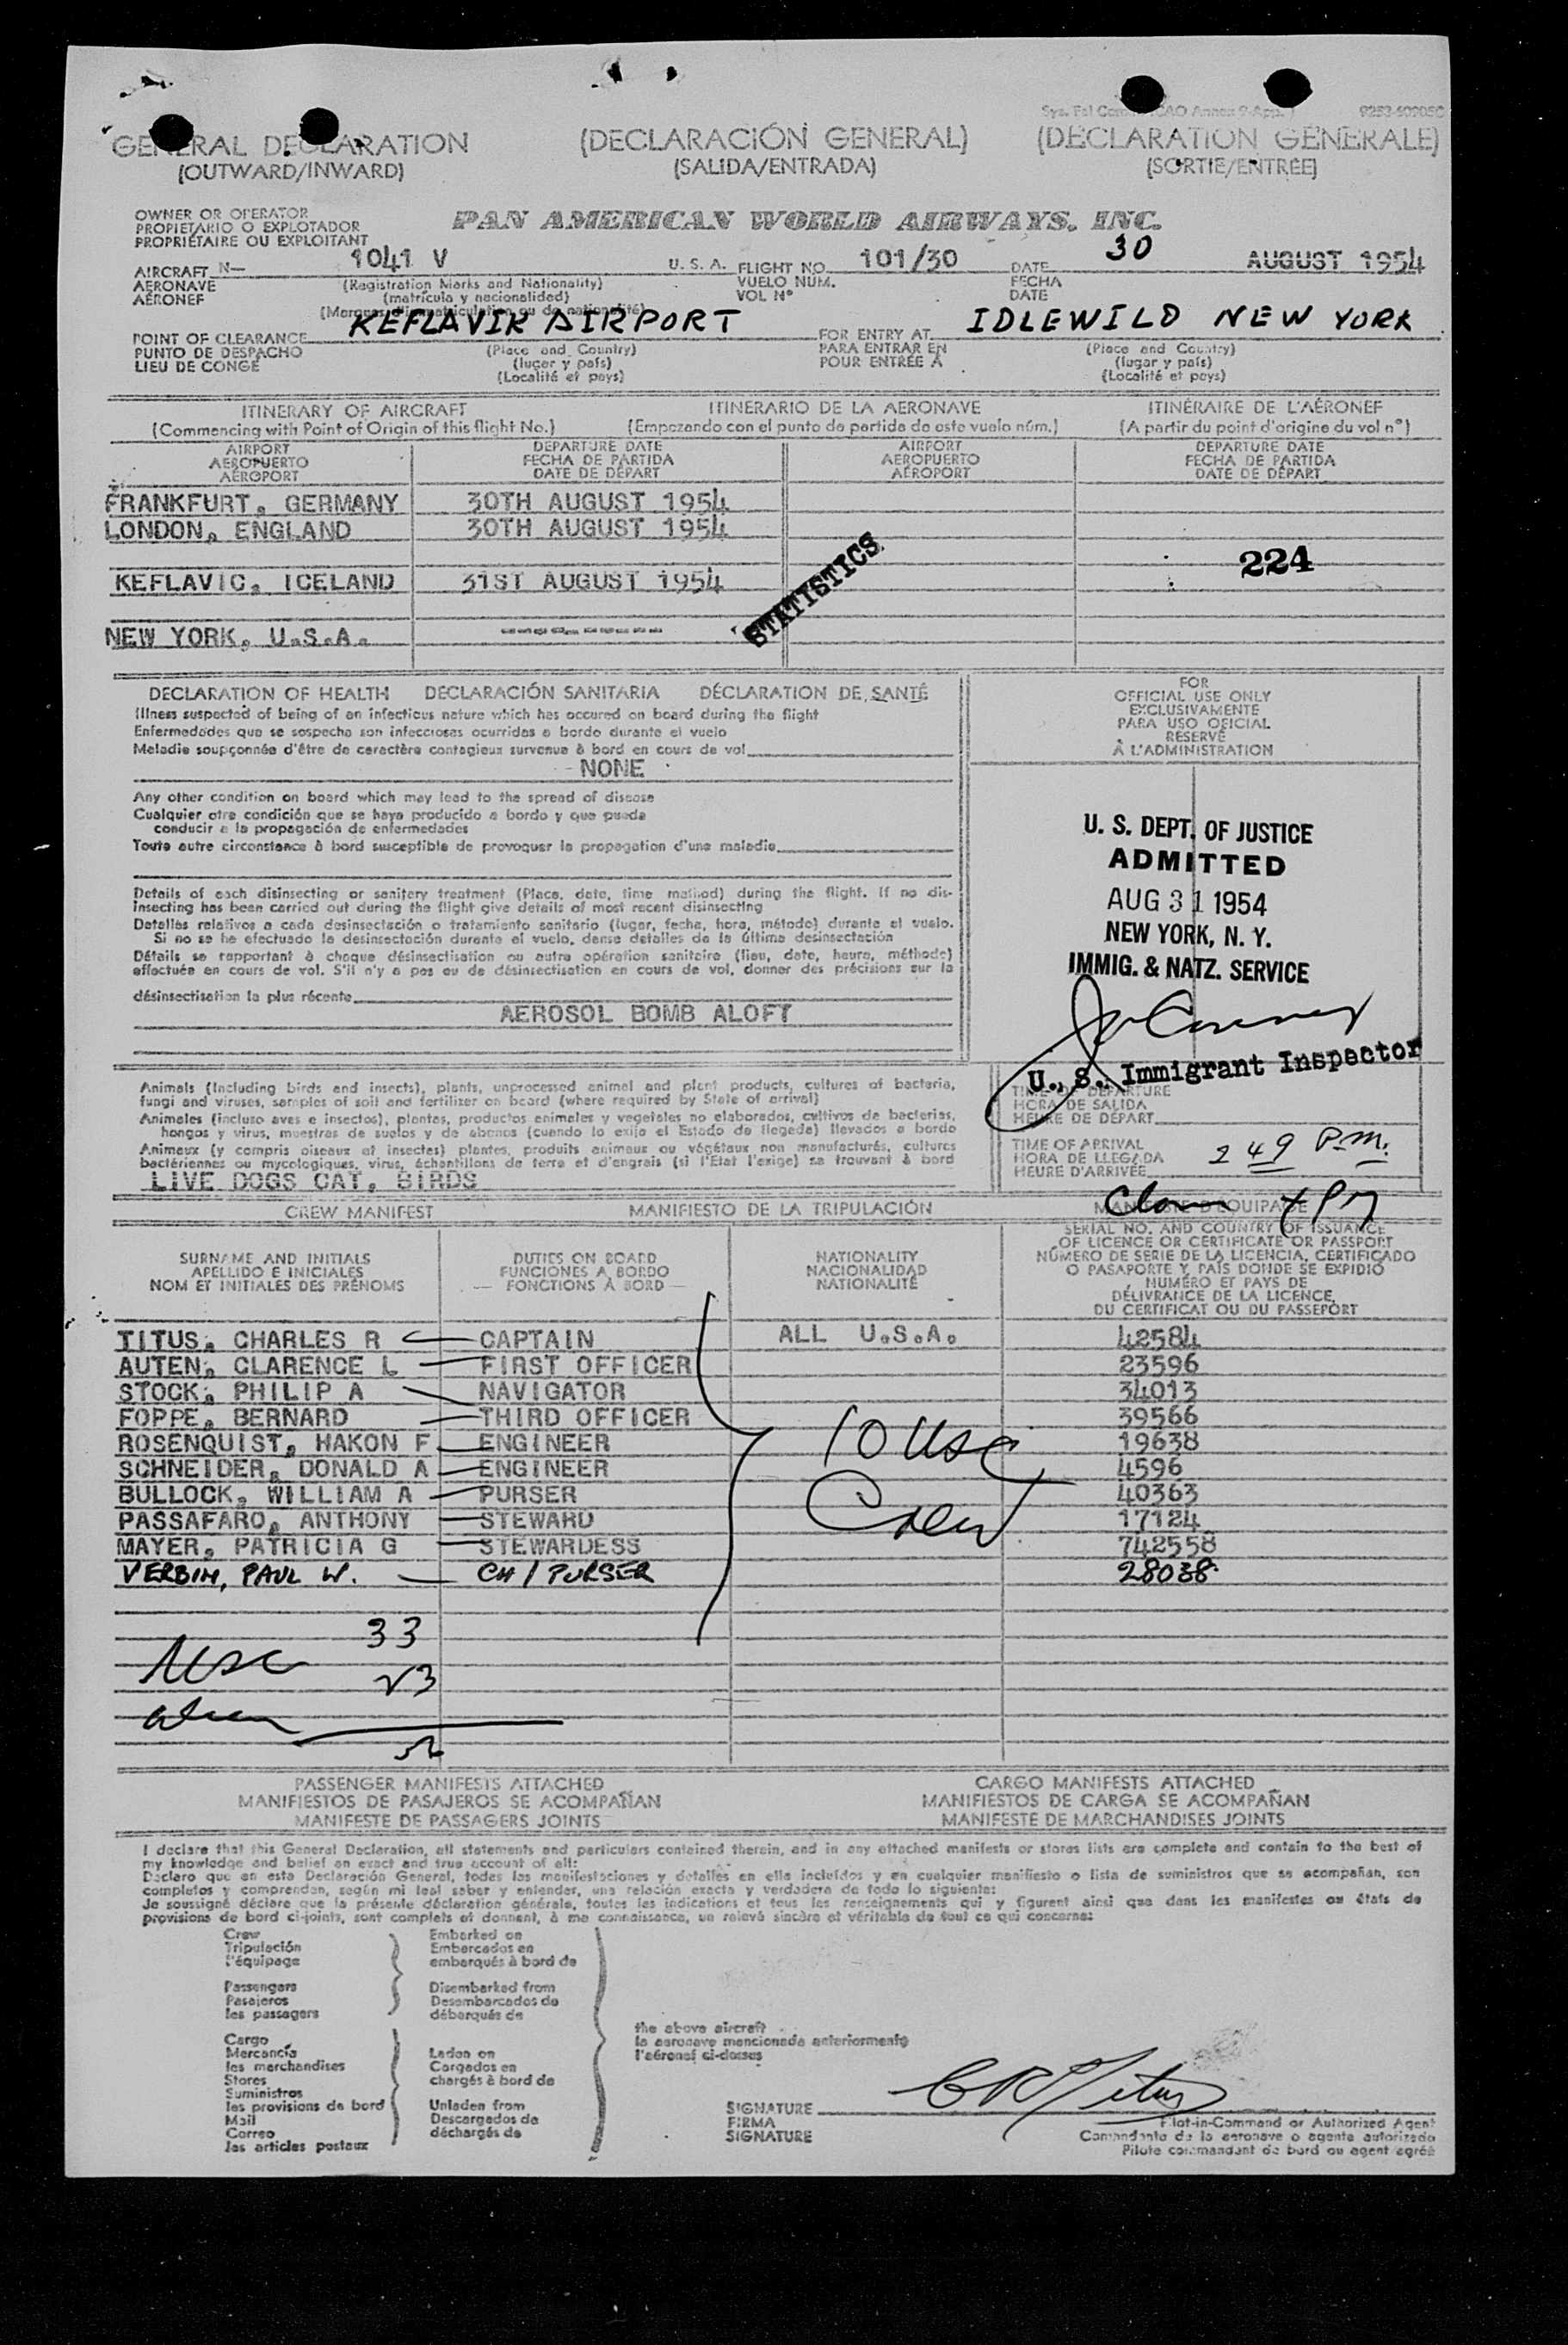 GENERAL DECLARATION (DECLARACIÓN GENERAL) (DÉCLARATION GÉNÉRALE)
(OUTWARD/INWARD) (SALIDA/ENTRADA) (SORTIE/ENTRÉE)
OWNER OR OPERATOR
PROPIETARIO O EXPLOTADOR
PROPRIÉTAIRE OU EXPLOITANT
PAN AMERICAN WORLD AIRWAYS, INC.
AIRCRAFT N— 1041 V U. S. A. FLIGHT NO. 101/30 DATE 30 AUGUST 1954
AERONAVE (Registration Marks and Nationality) VUELO NUM. FECHA
AÉRONEF (matrícula y nacionalidad) VOL Nº DATE
(Marques d'immatriculation ou de nationalité)
POINT OF CLEARANCE KEFLAVIK AIRPORT FOR ENTRY AT IDLEWILD NEW YORK
PUNTO DE DESPACHO (Place and Country) PARA ENTRAR EN (Place and Country)
LIEU DE CONGÉ (lugar y país) POUR ENTRÉE À (lugar y país)
(Localité et pays) (Localité et pays)
ITINERARY OF AIRCRAFT ITINERARIO DE LA AERONAVE ITINÉRAIRE DE L'AÉRONEF
(Commencing with Point of Origin of this flight No.) (Empezando con el punto de partida de este vuelo núm.) (A partir du point d'origine du vol nº)
AIRPORT DEPARTURE DATE AIRPORT DEPARTURE DATE
AEROPUERTO FECHA DE PARTIDA AEROPUERTO FECHA DE PARTIDA
AÉROPORT DATE DE DÉPART AÉROPORT DATE DE DÉPART
FRANKFURT, GERMANY 30TH AUGUST 1954
LONDON, ENGLAND 30TH AUGUST 1954
224
KEFLAVIC, ICELAND 31ST AUGUST 1954
STATISTICS
NEW YORK, U.S.A.
DECLARATION OF HEALTH DECLARACIÓN SANITARIA DÉCLARATION DE SANTÉ
Illness suspected of being of an infectious nature which has occured on board during the flight
Enfermedades que se sospecha son infecciosas ocurridas a bordo durante el vuelo
Maladie soupçonnée d'être de caractère contagieux survenue à bord en cours de vol
NONE
Any other condition on board which may lead to the spread of disease
Cualquier otra condición que se haya producido a bordo y que pueda
conducir a la propagación de enfermedades
Toute autre circonstance à bord susceptible de provoquer la propagation d'une maladie
Details of each disinsecting or sanitary treatment (Place, date, time method) during the flight. If no dis-
insecting has been carried out during the flight give details of most recent disinsecting
Detalles relativos a cada desinsectación o tratamiento sanitario (lugar, fecha, hora, método) durante el vuelo.
Si no se ha efectuado la desinsectación durante el vuelo, dense detalles de la última desinsectación
Détails se rapportant à chaque désinsectisation ou autre opération sanitaire (lieu, date, heure, méthode)
effectuée en cours de vol. S'il n'y a pas eu de désinsectisation en cours de vol, donner des précisions sur la
désinsectisation la plus récente
AEROSOL BOMB ALOFT
FOR
OFFICIAL USE ONLY
EXCLUSIVAMENTE
PARA USO OFICIAL
RESERVÉ
À L'ADMINISTRATION
U. S. DEPT. OF JUSTICE
ADMITTED
AUG 31 1954
NEW YORK, N. Y.
IMMIG. & NATZ. SERVICE
U. S. Immigrant Inspector
Animals (Including birds and insects), plants, unprocessed animal and plant products, cultures of bacteria,
fungi and viruses, samples of soil and fertilizer on board (where required by State of arrival)
Animales (incluso aves e insectos), plantas, productos animales y vegetales no elaborados, cultivos de bacterias,
hongos y virus, muestras de suelos y de abonos (cuando lo exija el Estado de llegada) llevados a bordo
Animaux (y compris oiseaux et insectes) plantes, produits animaux ou végétaux non manufacturés, cultures
bactériennes ou mycologiques, virus, échantillons de terre et d'engrais (si l'Etat l'exige) se trouvant à bord
LIVE DOGS CAT, BIRDS
TIME OF DEPARTURE
HORA DE SALIDA
HEURE DE DÉPART
TIME OF ARRIVAL
HORA DE LLEGADA 2 49 P.M.
HEURE D'ARRIVÉE
CREW MANIFEST MANIFIESTO DE LA TRIPULACIÓN MANIFESTE D'ÉQUIPAGE
SURNAME AND INITIALS
APELLIDO E INICIALES
NOM ET INITIALES DES PRÉNOMS
DUTIES ON BOARD
FUNCIONES A BORDO
FONCTIONS À BORD
NATIONALITY
NACIONALIDAD
NATIONALITÉ
SERIAL NO. AND COUNTRY OF ISSUANCE
OF LICENCE OR CERTIFICATE OR PASSPORT
NÚMERO DE SERIE DE LA LICENCIA, CERTIFICADO
O PASAPORTE Y PAÍS DONDE SE EXPIDIÓ
NUMÉRO ET PAYS DE
DÉLIVRANCE DE LA LICENCE,
DU CERTIFICAT OU DU PASSEPORT
TITUS, CHARLES R CAPTAIN ALL U.S.A. 42584
AUTEN, CLARENCE L FIRST OFFICER 23596
STOCK, PHILIP A NAVIGATOR 34013
FOPPE, BERNARD THIRD OFFICER 39566
ROSENQUIST, HAKON F ENGINEER 19638
SCHNEIDER, DONALD A ENGINEER 4596
BULLOCK, WILLIAM A PURSER 40363
PASSAFARO, ANTHONY STEWARD 17124
MAYER, PATRICIA G STEWARDESS 742558
VERBIN, PAUL W. CH / PURSER 28038
10 USC
Crew
33
USC 23
PASSENGER MANIFESTS ATTACHED CARGO MANIFESTS ATTACHED
MANIFIESTOS DE PASAJEROS SE ACOMPAÑAN MANIFIESTOS DE CARGA SE ACOMPAÑAN
MANIFESTE DE PASSAGERS JOINTS MANIFESTE DE MARCHANDISES JOINTS
I declare that this General Declaration, all statements and particulars contained therein, and in any attached manifests or stores lists are complete and contain to the best of
my knowledge and belief an exact and true account of all:
Declaro que en esta Declaración General, todas las manifestaciones y detalles en ella incluídos y en cualquier manifiesto o lista de suministros que se acompañan, son
completos y comprenden, según mi leal saber y entender, una relación exacta y verdadera de todo lo siguiente:
Je soussigné déclare que la présente déclaration générale, toutes les indications et tous les renseignements qui y figurent ainsi que dans les manifestes ou états de
provisions de bord ci-joints, sont complets et donnent, à ma connaissance, un relevé sincère et véritable de tout ce qui concerne:
Crew Embarked on
Tripulación Embarcados en
l'équipage embarqués à bord de
Passengers Disembarked from
Pasajeros Desembarcados de
les passagers débarqués de
the above aircraft
la aeronave mencionada anteriormente
l'aéronef ci-dessus
Cargo
Mercancía Laden on
les marchandises Cargados en
Stores chargés à bord de
Suministros
les provisions de bord Unladen from
Mail Descargados de
Correo déchargés de
les articles postaux
SIGNATURE CR Titus
FIRMA
SIGNATURE
Pilot-in-Command or Authorized Agent
Comandante de la aeronave o agente autorizado
Pilote commandant de bord ou agent agréé